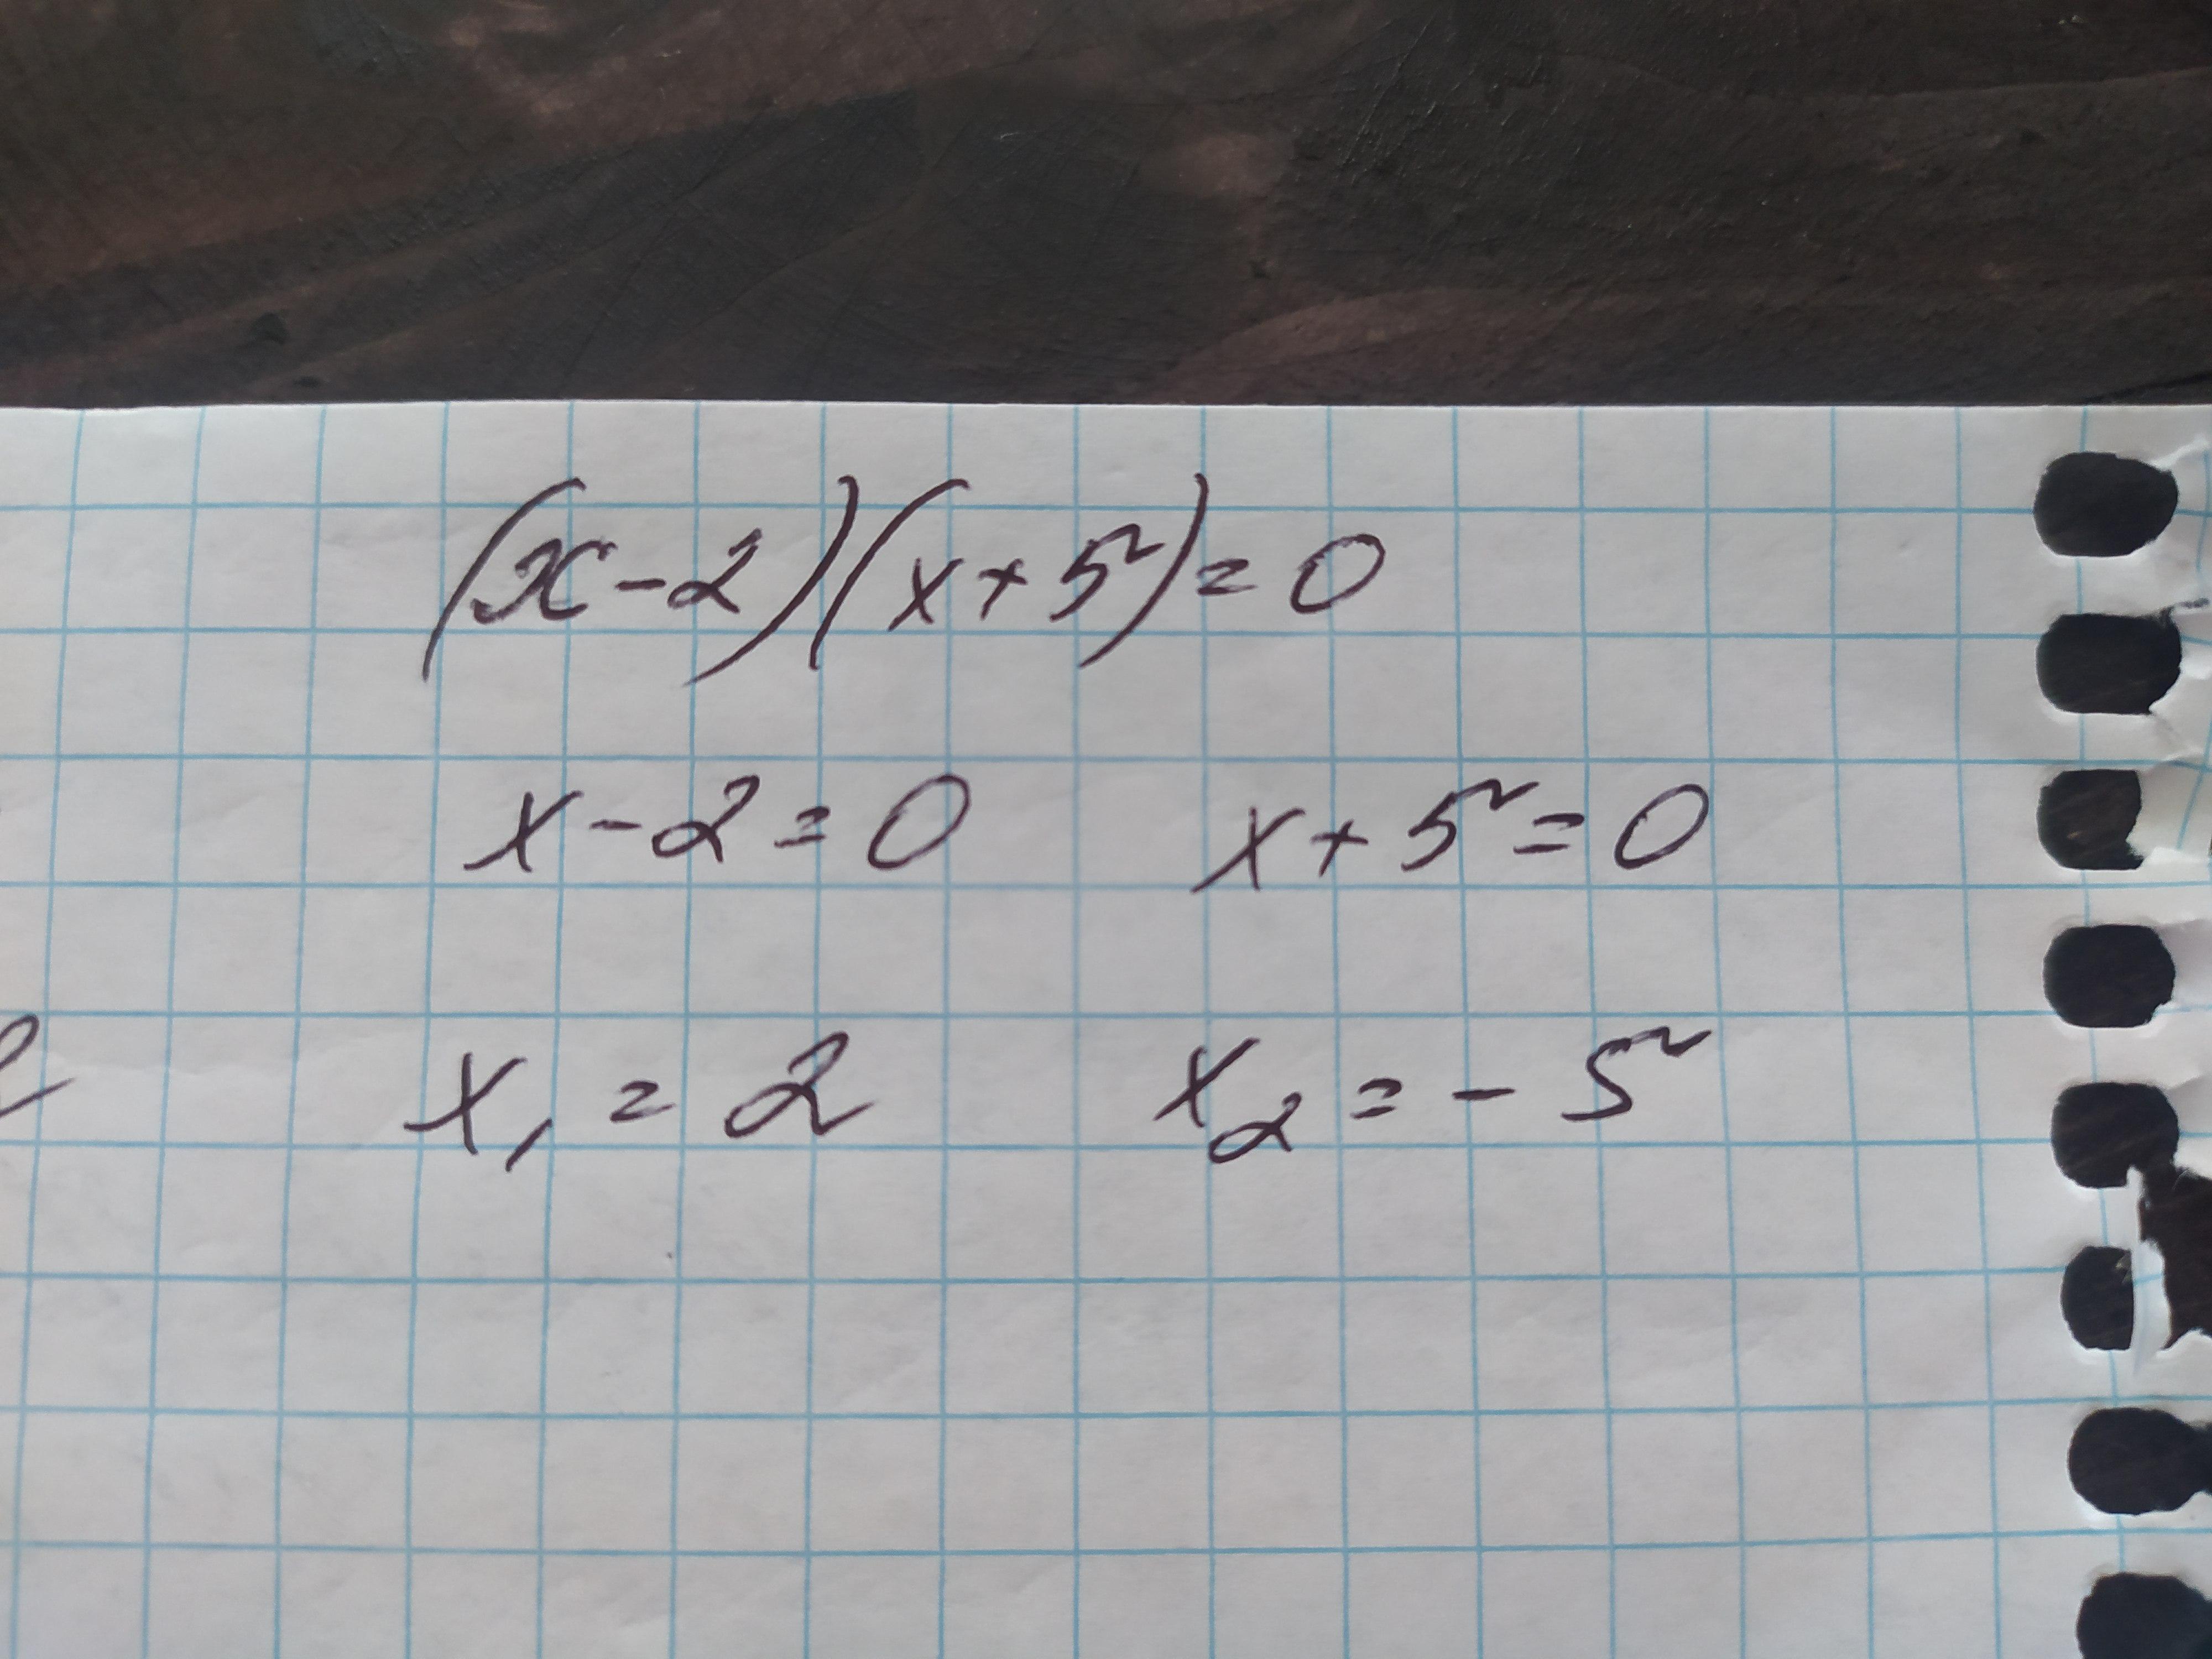 (x-2)(x+5)=0
x-2=0 x+5=0
2 x₁=2 x₂=-5